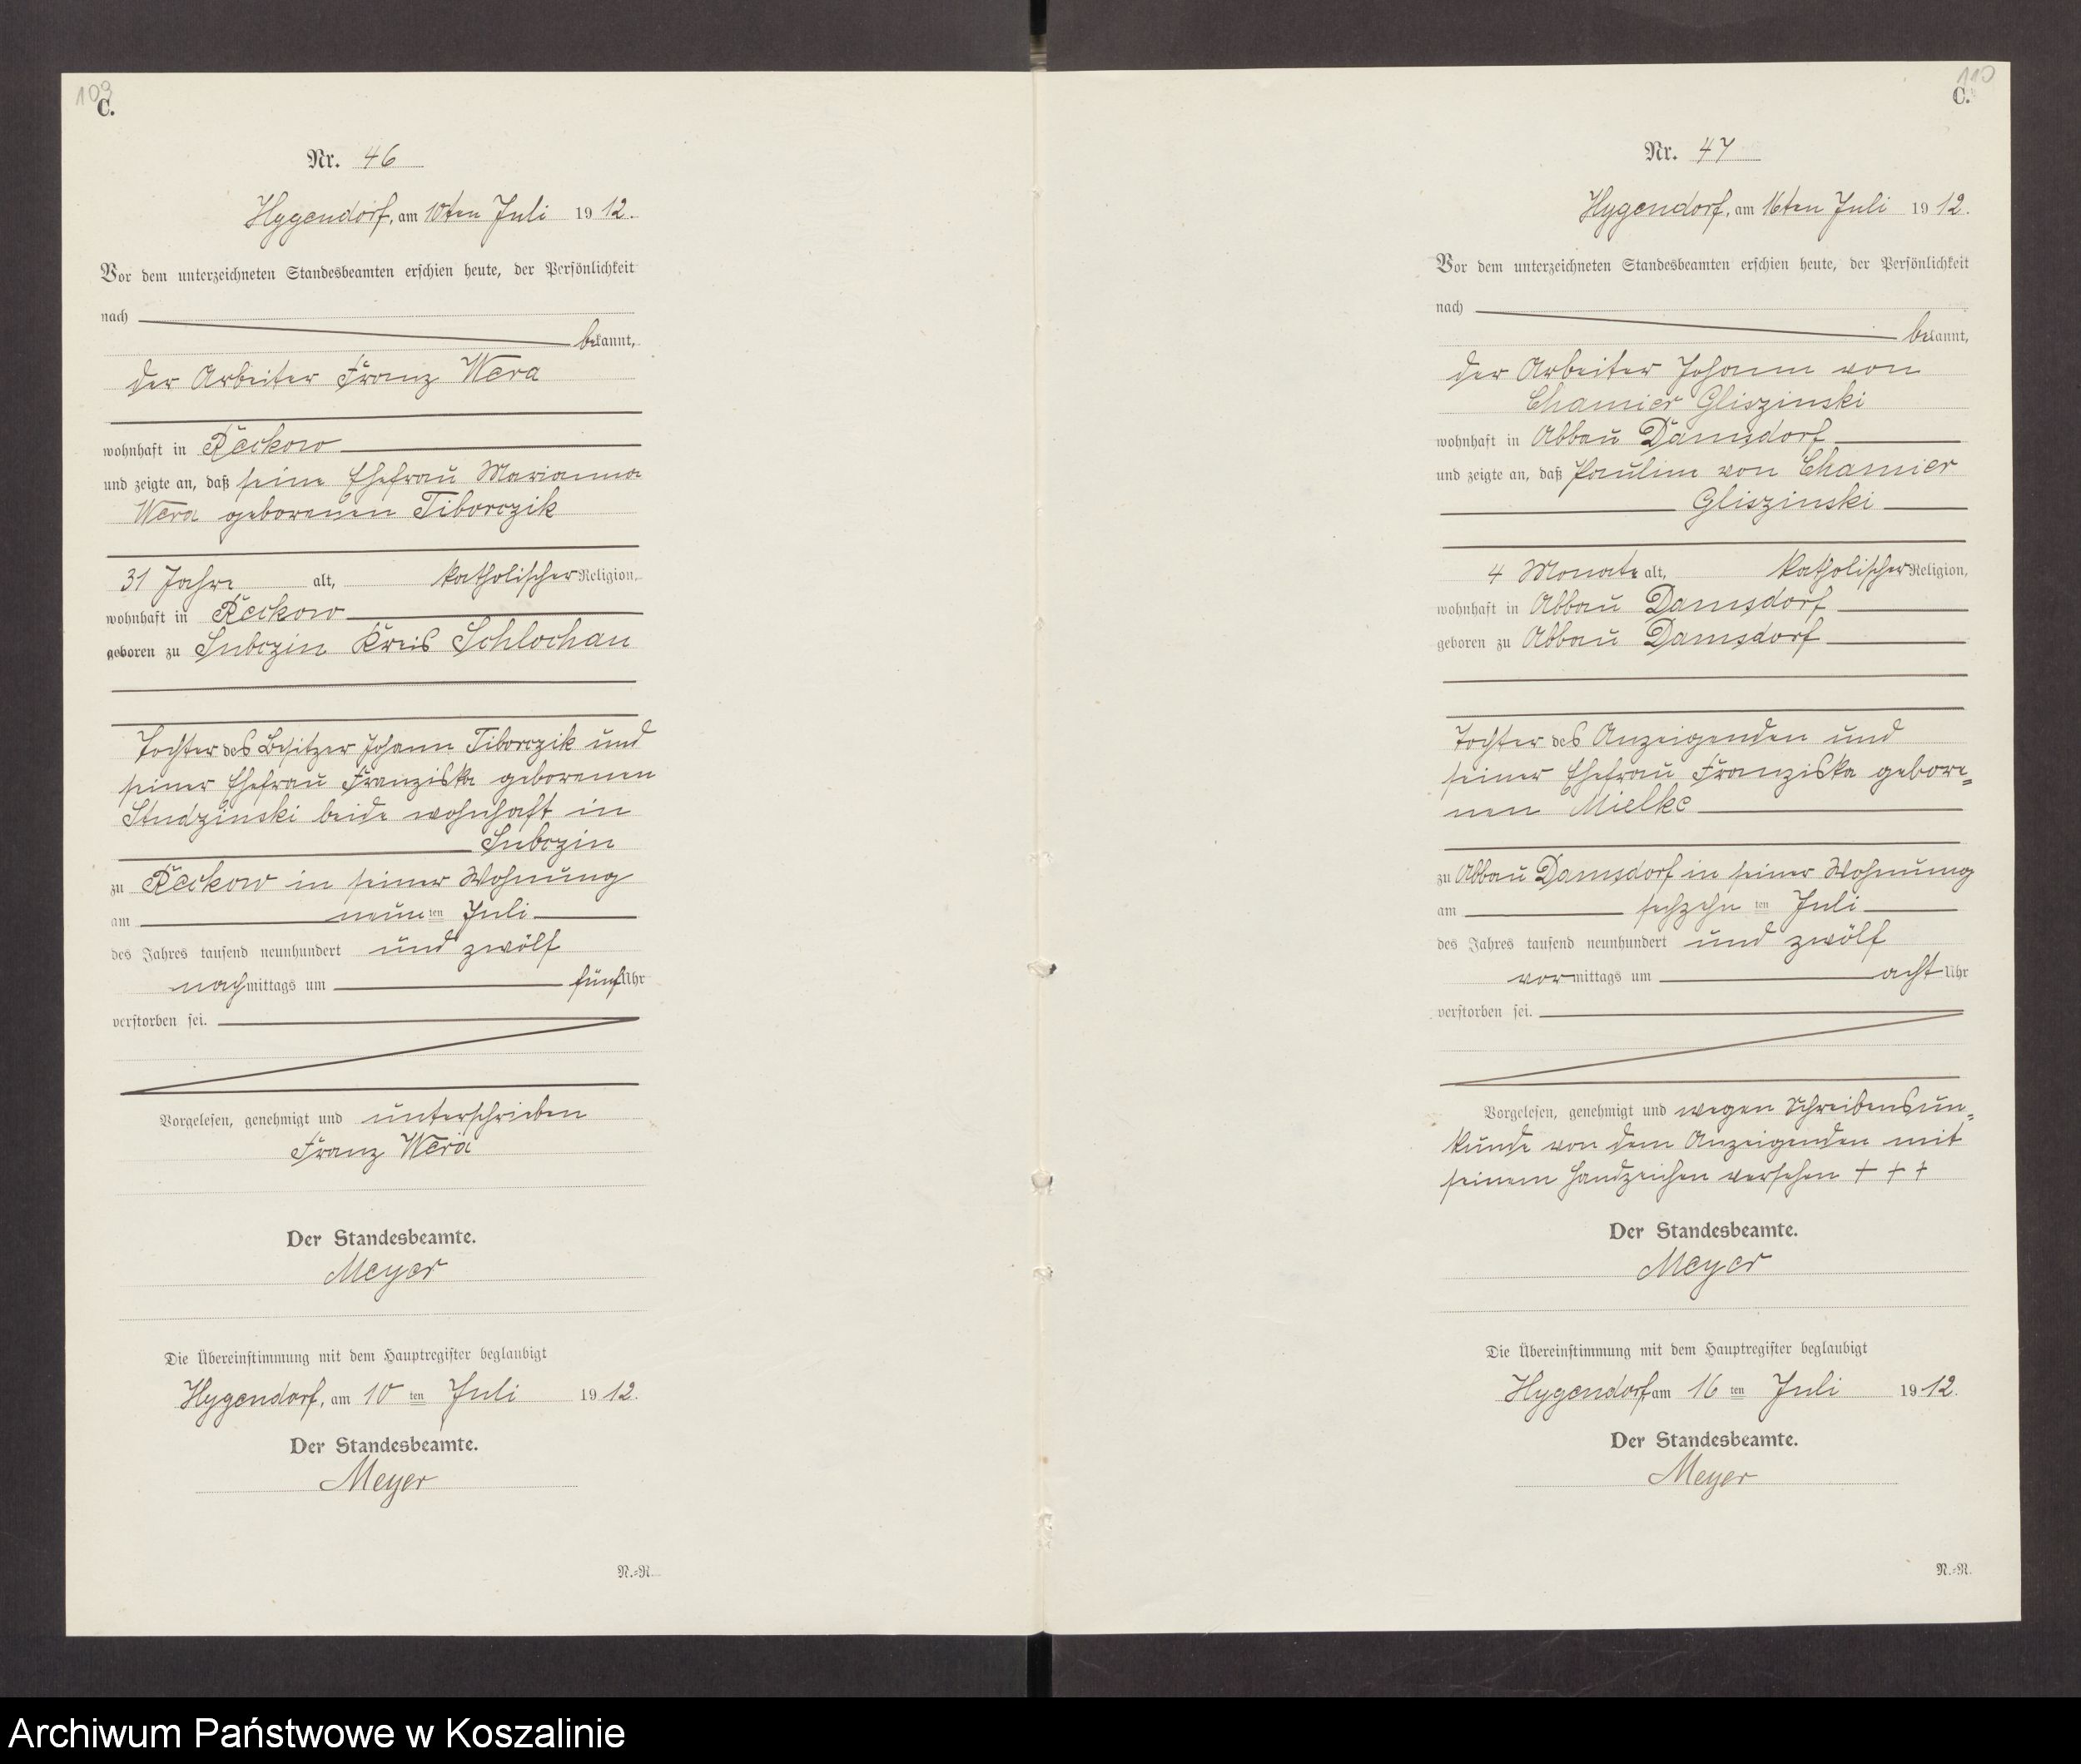 109
C.
Nr. 46
Hygendorf, am 10ten Juli 1912.
Vor dem unterzeichneten Standesbeamten erschien heute, der Persönlichkeit
nach
bekannt,
der Arbeiter Franz Wera
wohnhaft in Reckow
und zeigte an, daß seine Ehefrau Marianna
Wera geborenen Tiborczik
31 Jahre alt, katholischer Religion,
wohnhaft in Reckow
geboren zu Subczin Kreis Schlochau
Tochter des Besitzer Johann Tiborczik und
seiner Ehefrau Franziska geborenen
Studzinski beide wohnhaft in
Subczin
zu Reckow in seiner Wohnung
am neunten Juli
des Jahres tausend neunhundert und zwölf
nachmittags um fünf Uhr
verstorben sei.
Vorgelesen, genehmigt und unterschrieben
Franz Wera
Der Standesbeamte.
Meyer
Die Übereinstimmung mit dem Hauptregister beglaubigt
Hygendorf, am 10ten Juli 1912.
Der Standesbeamte.
Meyer
N.=N.
110
C.
Nr. 47
Hygendorf, am 16ten Juli 1912.
Vor dem unterzeichneten Standesbeamten erschien heute, der Persönlichkeit
nach
bekannt,
der Arbeiter Johann von
Chamier Gliszinski
wohnhaft in Abbau Damsdorf
und zeigte an, daß Pauline von Chamier
Gliszinski
4 Monate alt, katholischer Religion,
wohnhaft in Abbau Damsdorf
geboren zu Abbau Damsdorf
Tochter des Anzeigenden und
seiner Ehefrau Franziska gebore=
nen Mielke
zu Abbau Damsdorf in seiner Wohnung
am sechzehnten Juli
des Jahres tausend neunhundert und zwölf
vormittags um acht Uhr
verstorben sei.
Vorgelesen, genehmigt und wegen Schreibensun=
kunde von dem Anzeigenden mit
seinem Handzeichen versehen + + +
Der Standesbeamte.
Meyer
Die Übereinstimmung mit dem Hauptregister beglaubigt
Hygendorf, am 16ten Juli 1912.
Der Standesbeamte.
Meyer
N.=N.
Archiwum Państwowe w Koszalinie